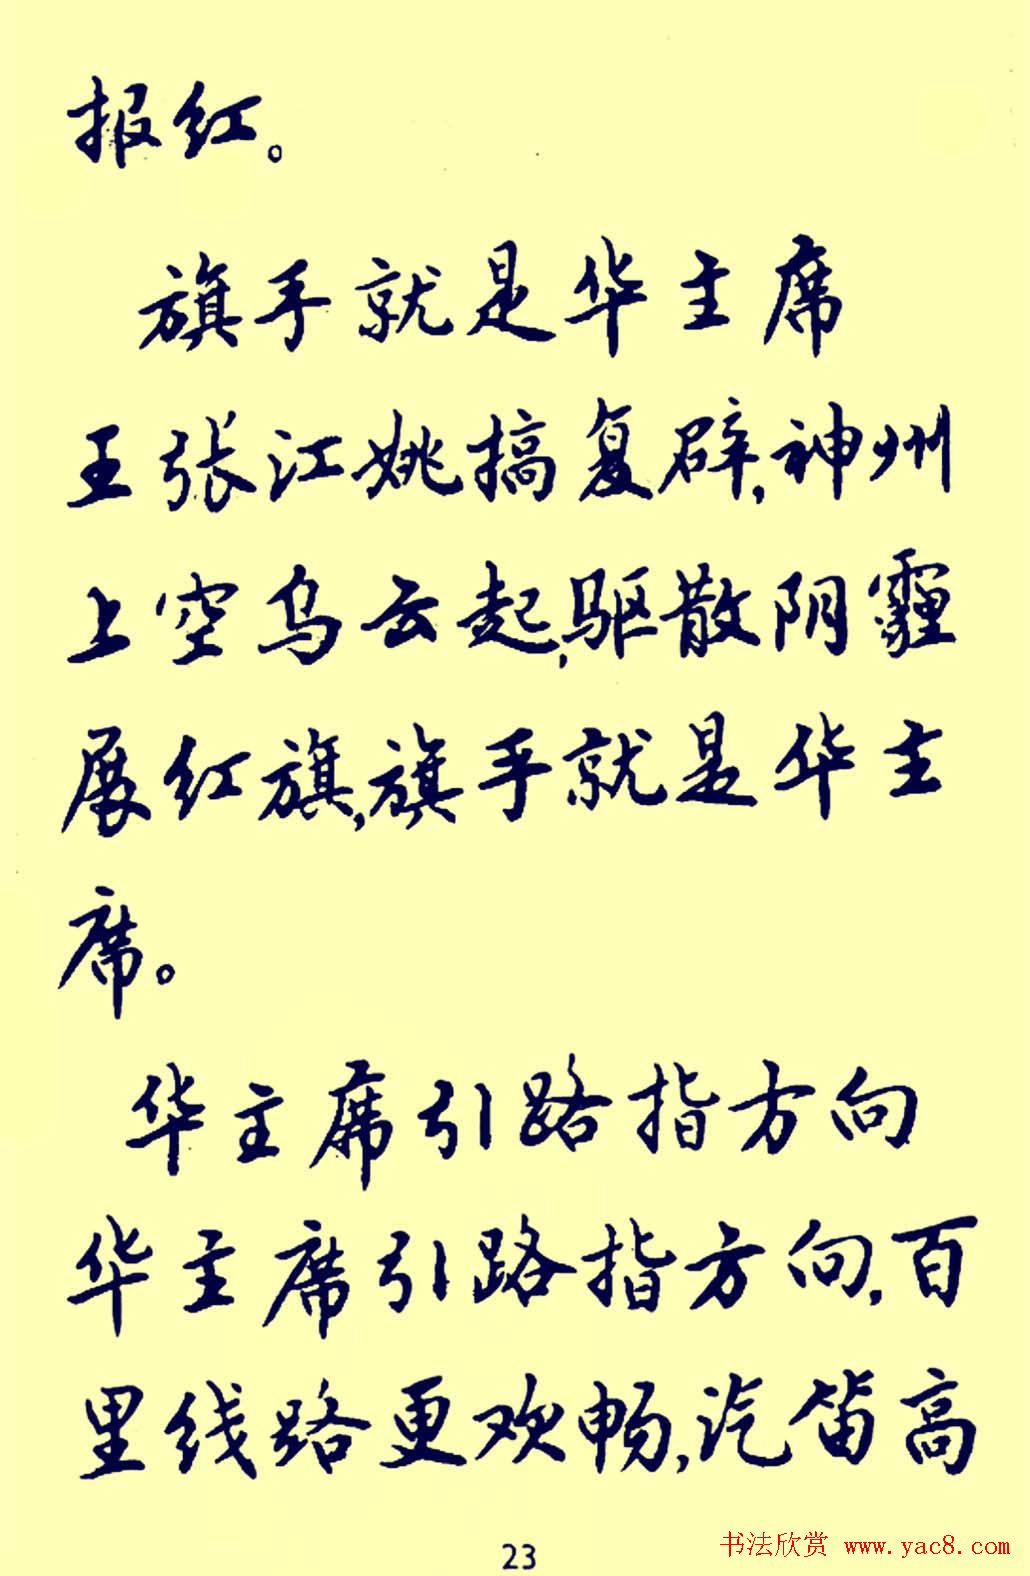 报红。
旗手就是华主席
王张江姚搞复辟,神州
上空乌云起,驱散阴霾
展红旗,旗手就是华主
席。
华主席引路指方向
华主席引路指方向,百
里线路更欢畅,汽笛高
23
书法欣赏 www.yac8.com